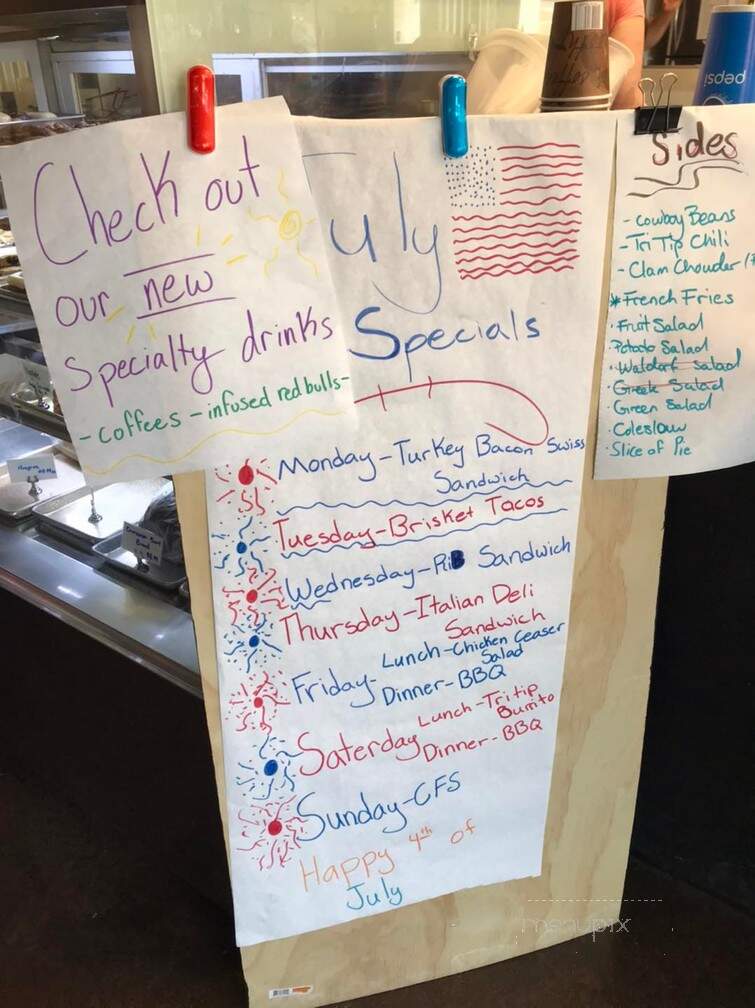 Check out
our new
Specialty drinks
- coffees - infused redbulls-
July
Specials
Monday-Turkey Bacon Swiss
Sandwich
Tuesday-Brisket Tacos
Wednesday-RiB Sandwich
Thursday-Italian Deli
Sandwich
Friday-
Lunch-Chicken Ceaser
Salad
Dinner-BBQ
Saterday
Lunch-Tritip
Burrito
Dinner-BBQ
Sunday-CFS
Happy 4th of
July
Sides
- Cowboy Beans
- Tri Tip Chili
- Clam Chouder
*French Fries
· Fruit Salad
Potato Salad
· Waldorf Salad
· Greek Salad
· Green Salad
· Coleslaw
· Slice of Pie
pepsi
menupix